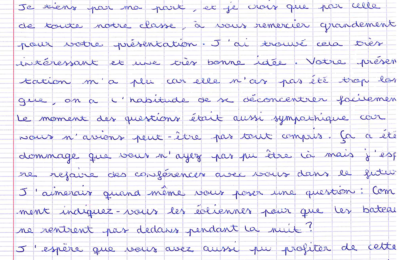 Je tiens par ma part, et je crois que par celle
de toute notre classe, à vous remercier grandement
pour votre présentation. J'ai trouvé cela très
intéressant et une très bonne idée. Votre présen-
tation m'a plu car elle n'as pas été trop lon
gue, on a l'habitude de se déconcentrer facilemen
Le moment des questions était aussi sympathique car
nous n'avions peut-être pas tout compris. Ça a été
dommage que vous n'ayez pas pu être là mais j'esp
re refaire des conférences avec vous dans le futur
J'aimerais quand même vous poser une question : Com
ment indiquez-vous les éoliennes pour que les bateau
ne rentrent pas dedans pendant la nuit ?
J'espère que vous avez aussi pu profiter de cette